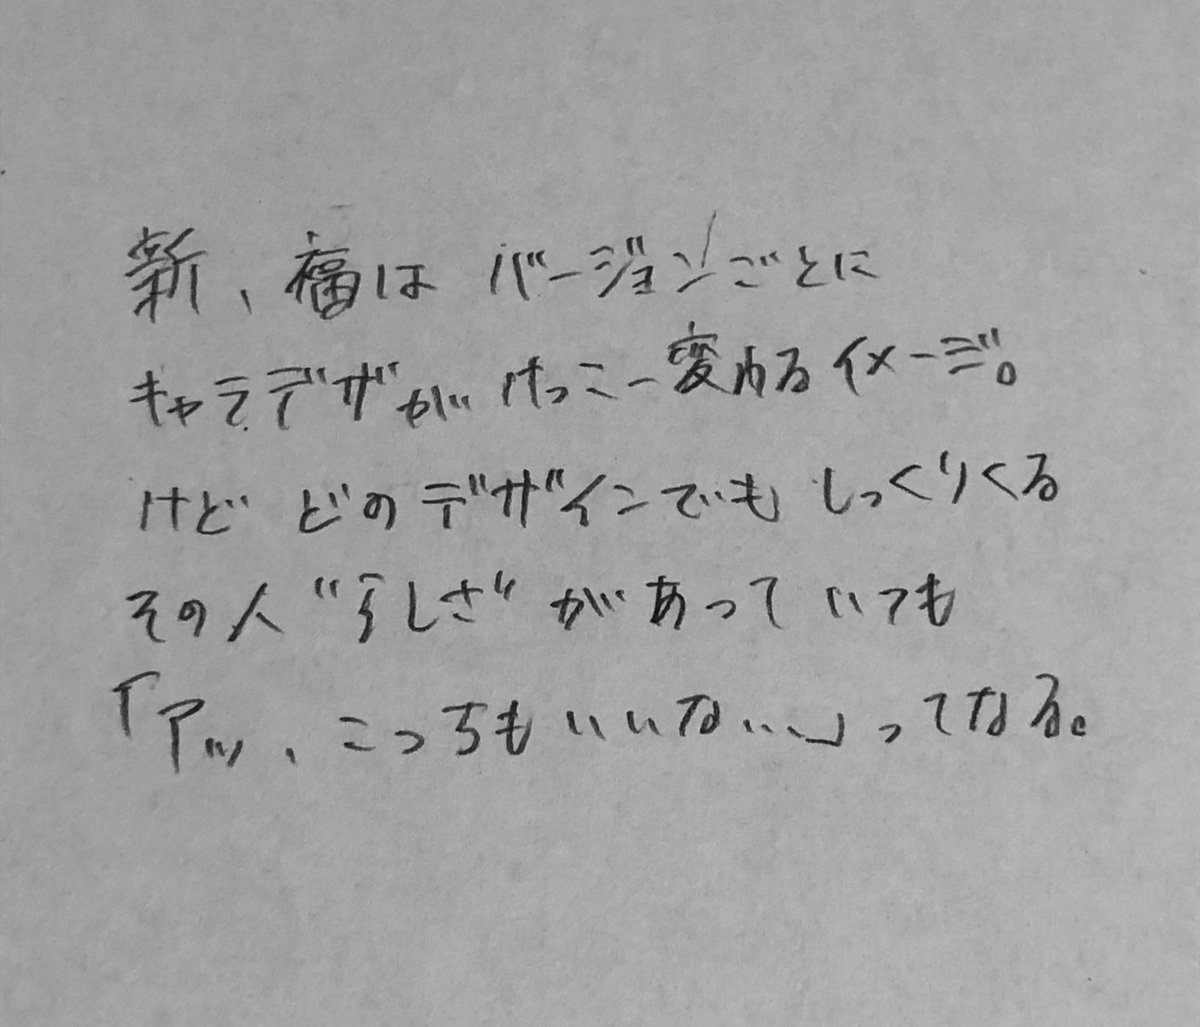 新、福は バージョンごとに
キャラデザが けっこー変わるイメージ。
けど どのデザインでも しっくりくる
その人“らしさ”があって いつも
「アッ、こっちもいいな…」ってなる。